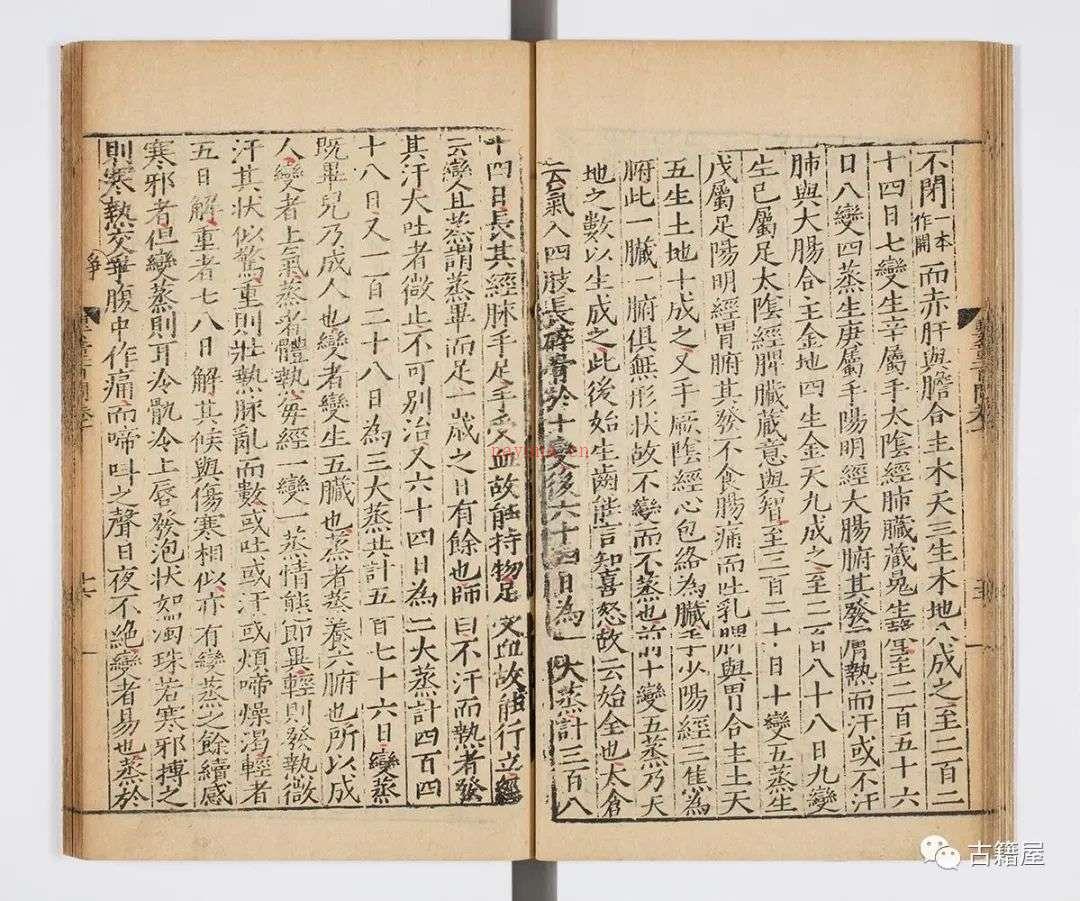 不閉一本作開而赤肝與膽合主木天三生木地八成之至二百二
十四日七變生辛屬手太陰經肺臟藏魄生至二百五十六
日八變四蒸生庚屬手陽明經大腸腑其發膚熱而汗或不汗
肺與大腸合主金地四生金天九成之至二百八十八日九變
生已屬足太陰經脾臟藏意與智至三百二十日十變五蒸生
戊屬足陽明經胃腑其發不食腸痛而吐乳脾與胃合主土天
五生土地十成之又手厥陰經心包絡為臟手少陽經三焦為
腑此一臟一腑俱無形狀故不變而不蒸也前十變五蒸乃天
地之數以生成之此後始生齒能言知喜怒故云始全也太倉
云氣入四肢長碎骨於十變後六十四日為一大蒸計三百八
十四日長其經脉手足手受血故能持物足受血故能行立經
云變且蒸謂蒸畢而足一歲之日有餘也師曰不汗而熱者發
其汗大吐者微止不可別治又六十四日為二大蒸計四百四
十八日又一百二十八日為三大蒸共計五百七十六日變蒸
既畢兒乃成人也變者變生五臟也蒸者蒸養六腑也所以成
人變者上氣蒸者體熱每經一變一蒸情態即異輕則發熱微
汗其狀似驚重則壯熱脉亂而數或吐或汗或煩啼燥渴輕者
五日解重者七八日解其候與傷寒相似亦有變蒸之餘續感
寒邪者但變蒸則耳冷骩冷上唇發泡狀如濁珠若寒邪搏之
則寒熱交爭腹中作痛而啼叫之聲日夜不絕變者易也蒸於
爭
nayona.cn
古籍屋